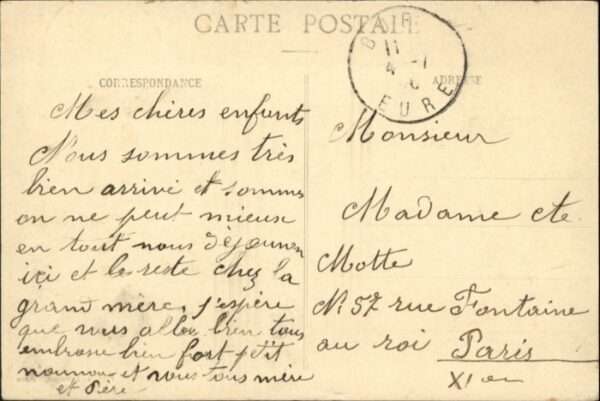 CARTE POSTALE
CORRESPONDANCE
ADRESSE
11
4
EURE
Mes chères enfants
Nous sommes très
bien arrivé et sommes
on ne peut mieux
en tout nous déjeunon
ici et le reste chez la
grand mère, j'espère
que vous allez bien tous
embrasse bien fort petit
et vous tous mère
et Père
Monsieur
Madame
Motte
N: 57 rue Fontaine
au roi Paris
XI